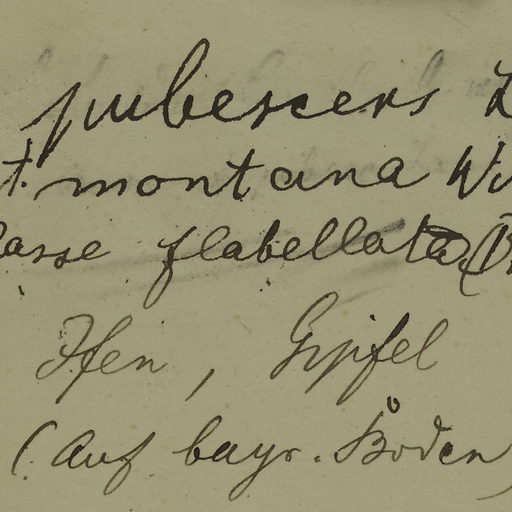 pubescens
t. montana
flabellata
Ifen, Gipfel
(Auf bayr. Boden